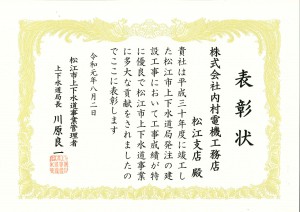 表彰状
株式会社内村電機工務店
松江支店 殿
貴社は平成三十年度に竣工し
た松江市上下水道局発注の建
設工事において工事成績が特
に優良で松江市上下水道事業
に多大な貢献をされましたの
でここに表彰します
令和元年八月二日
松江市上下水道事業管理者
上下水道局長 川原良一